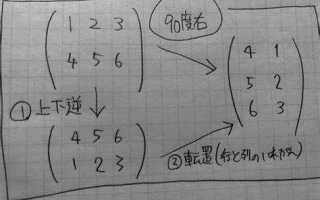 1 2 3
4 5 6
90度右
4 1
5 2
6 3
① 上下逆
4 5 6
1 2 3
② 転置(行と列の入れかえ)